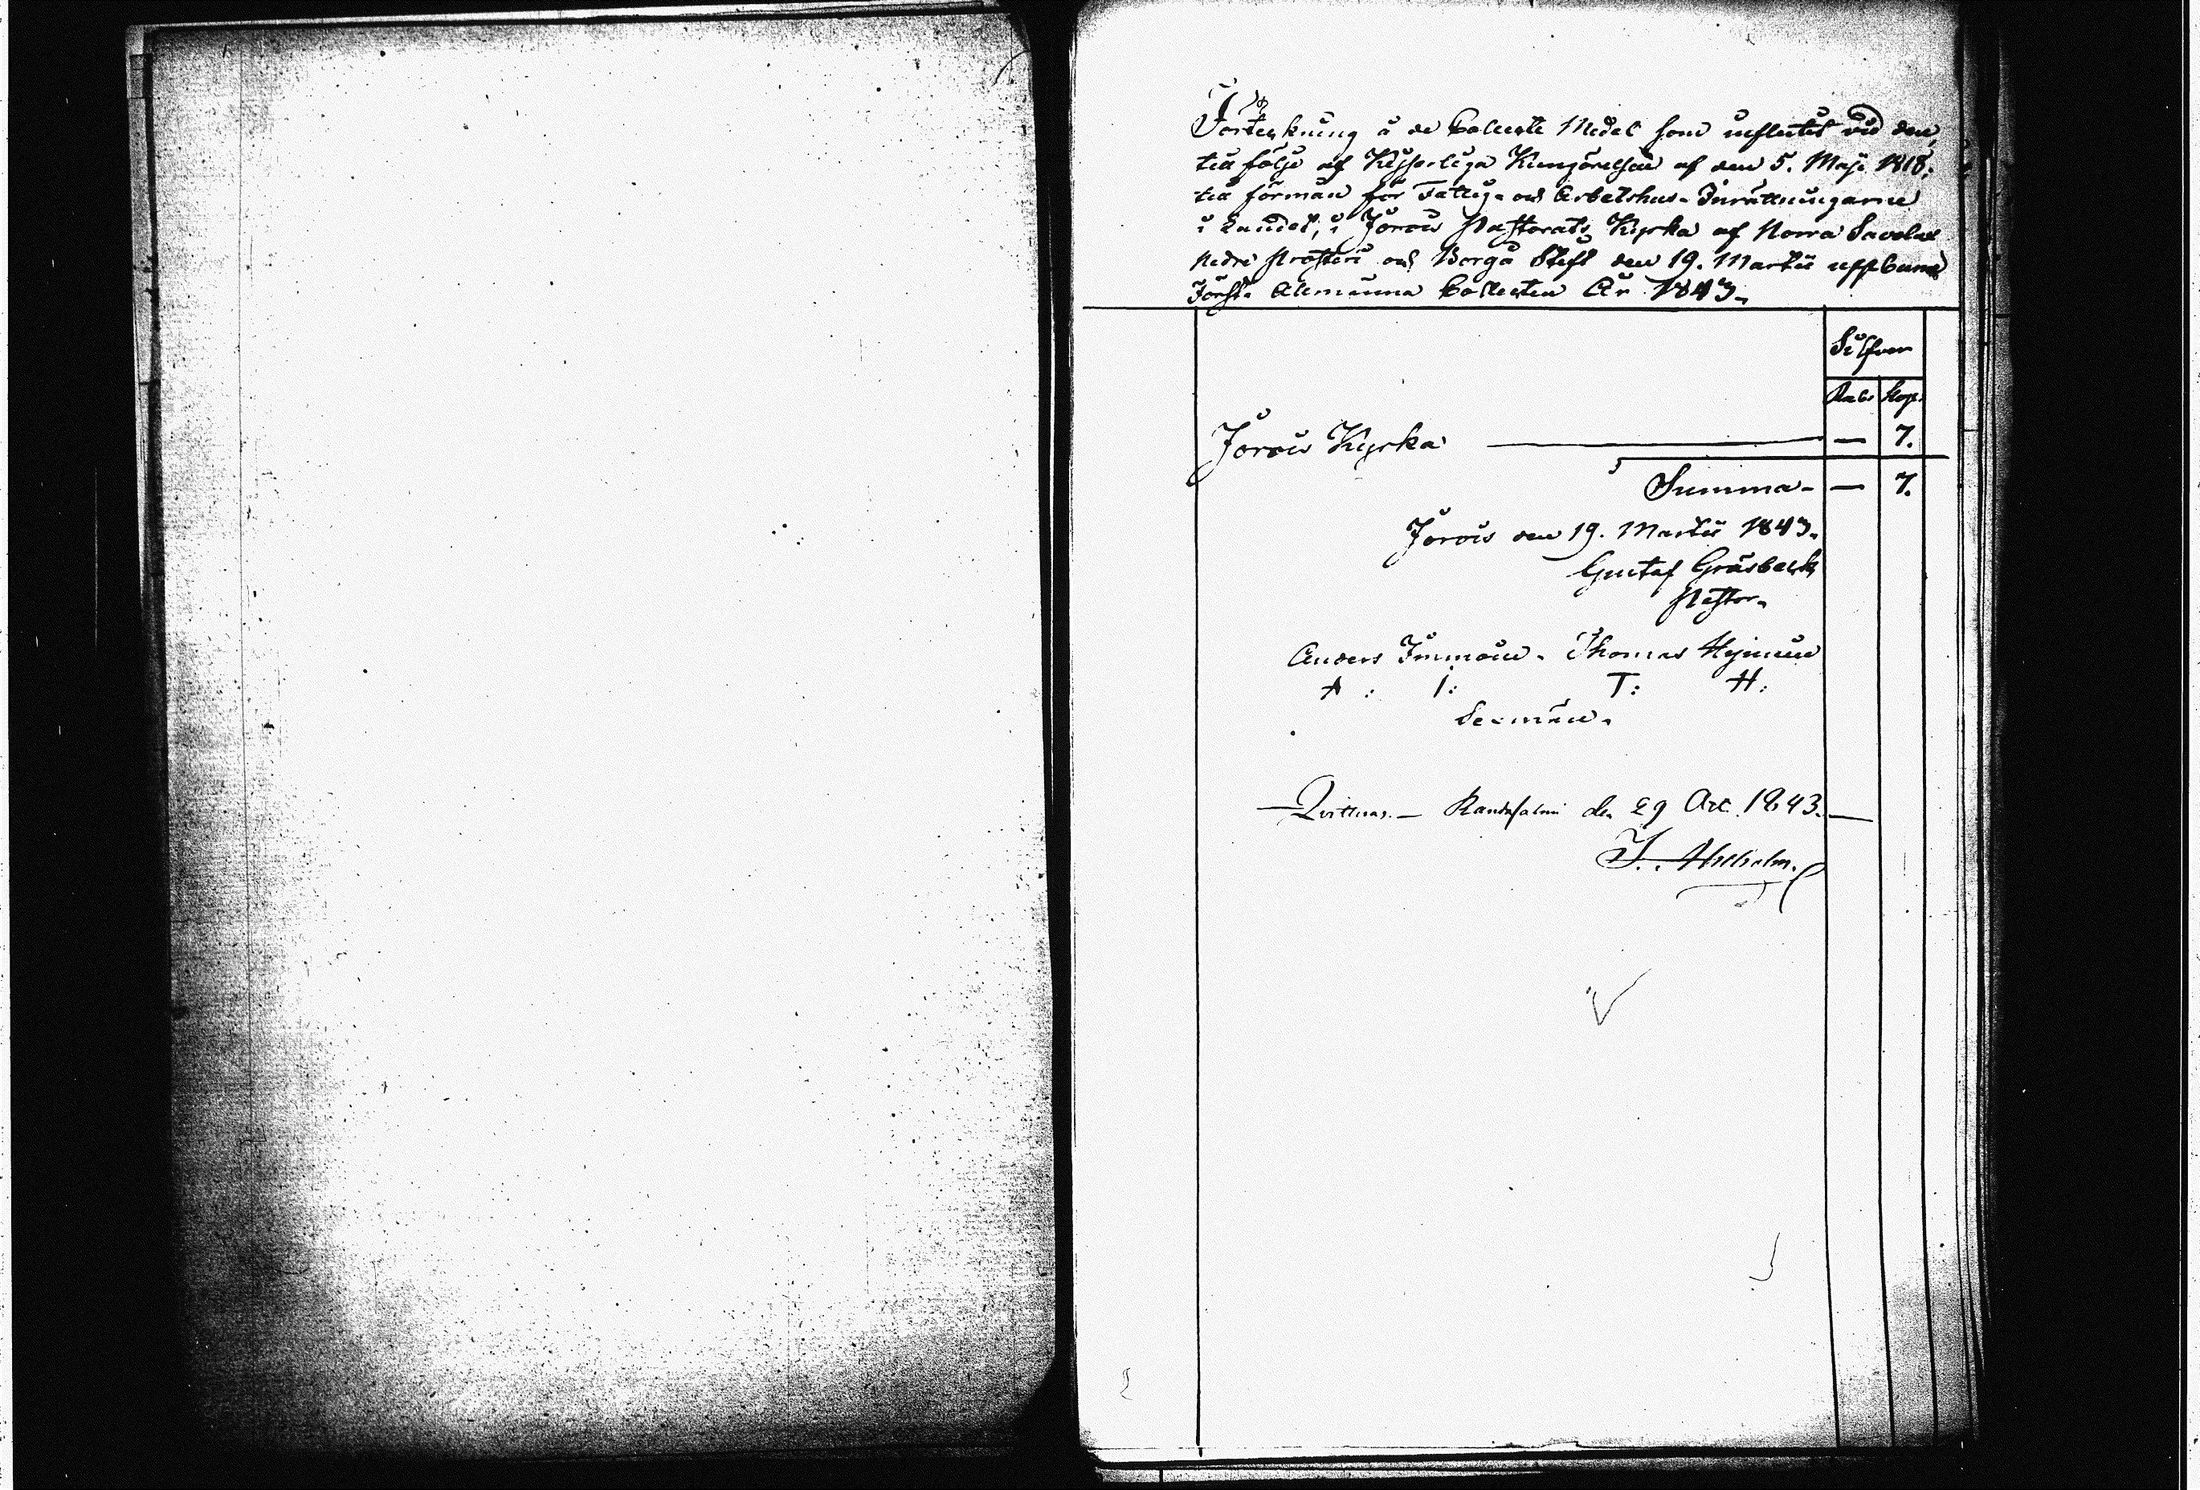 Förteckning å de Collecte Medel som influtit vid den,
till följe af Kejserliga Kungörelsen af den 5. Maji 1818,
till förmån för Fattig- och Arbetshus-Inrättningarne
i Landet, i Jorois Pastorats Kyrka af Norra Savolax
nedre Prosteri och Borgå Stift den 19. Martii uppburna
Första Allmänna Collecten År 1843.
Silfver
Rub. Kop.
Jorois Kyrka — 7.
Summa - — 7.
Jorois den 19. Martii 1843.
Gustaf Gråsbeck
Pastor.
Anders Immoin. Thomas
A : I: T: H:
Sexmän.
Qvitteras. — Randasalmi d. 29 1843. —